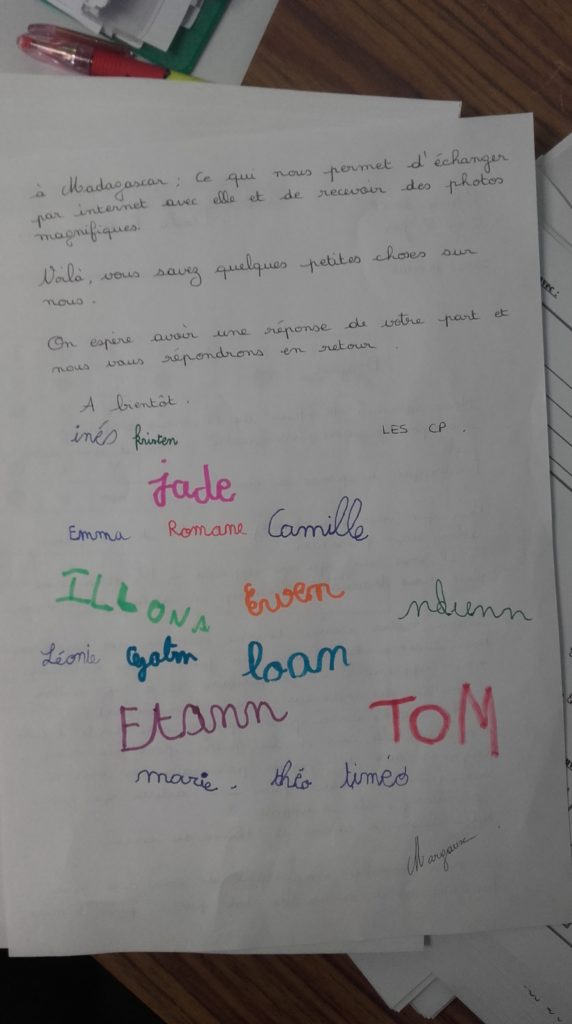 à Madagascar ; Ce qui nous permet d'échanger
par internet avec elle et de recevoir des photos
magnifiques.
Voilà, vous savez quelques petites choses sur
nous.
On espère avoir une réponse de votre part et
nous vous répondrons en retour.
A bientôt.
LES CP.
inés kristen
jade
Emma Romane Camille
ILLONA Erwen
Léonie loan
Etann TOM
marie. théo timéo
Margaux